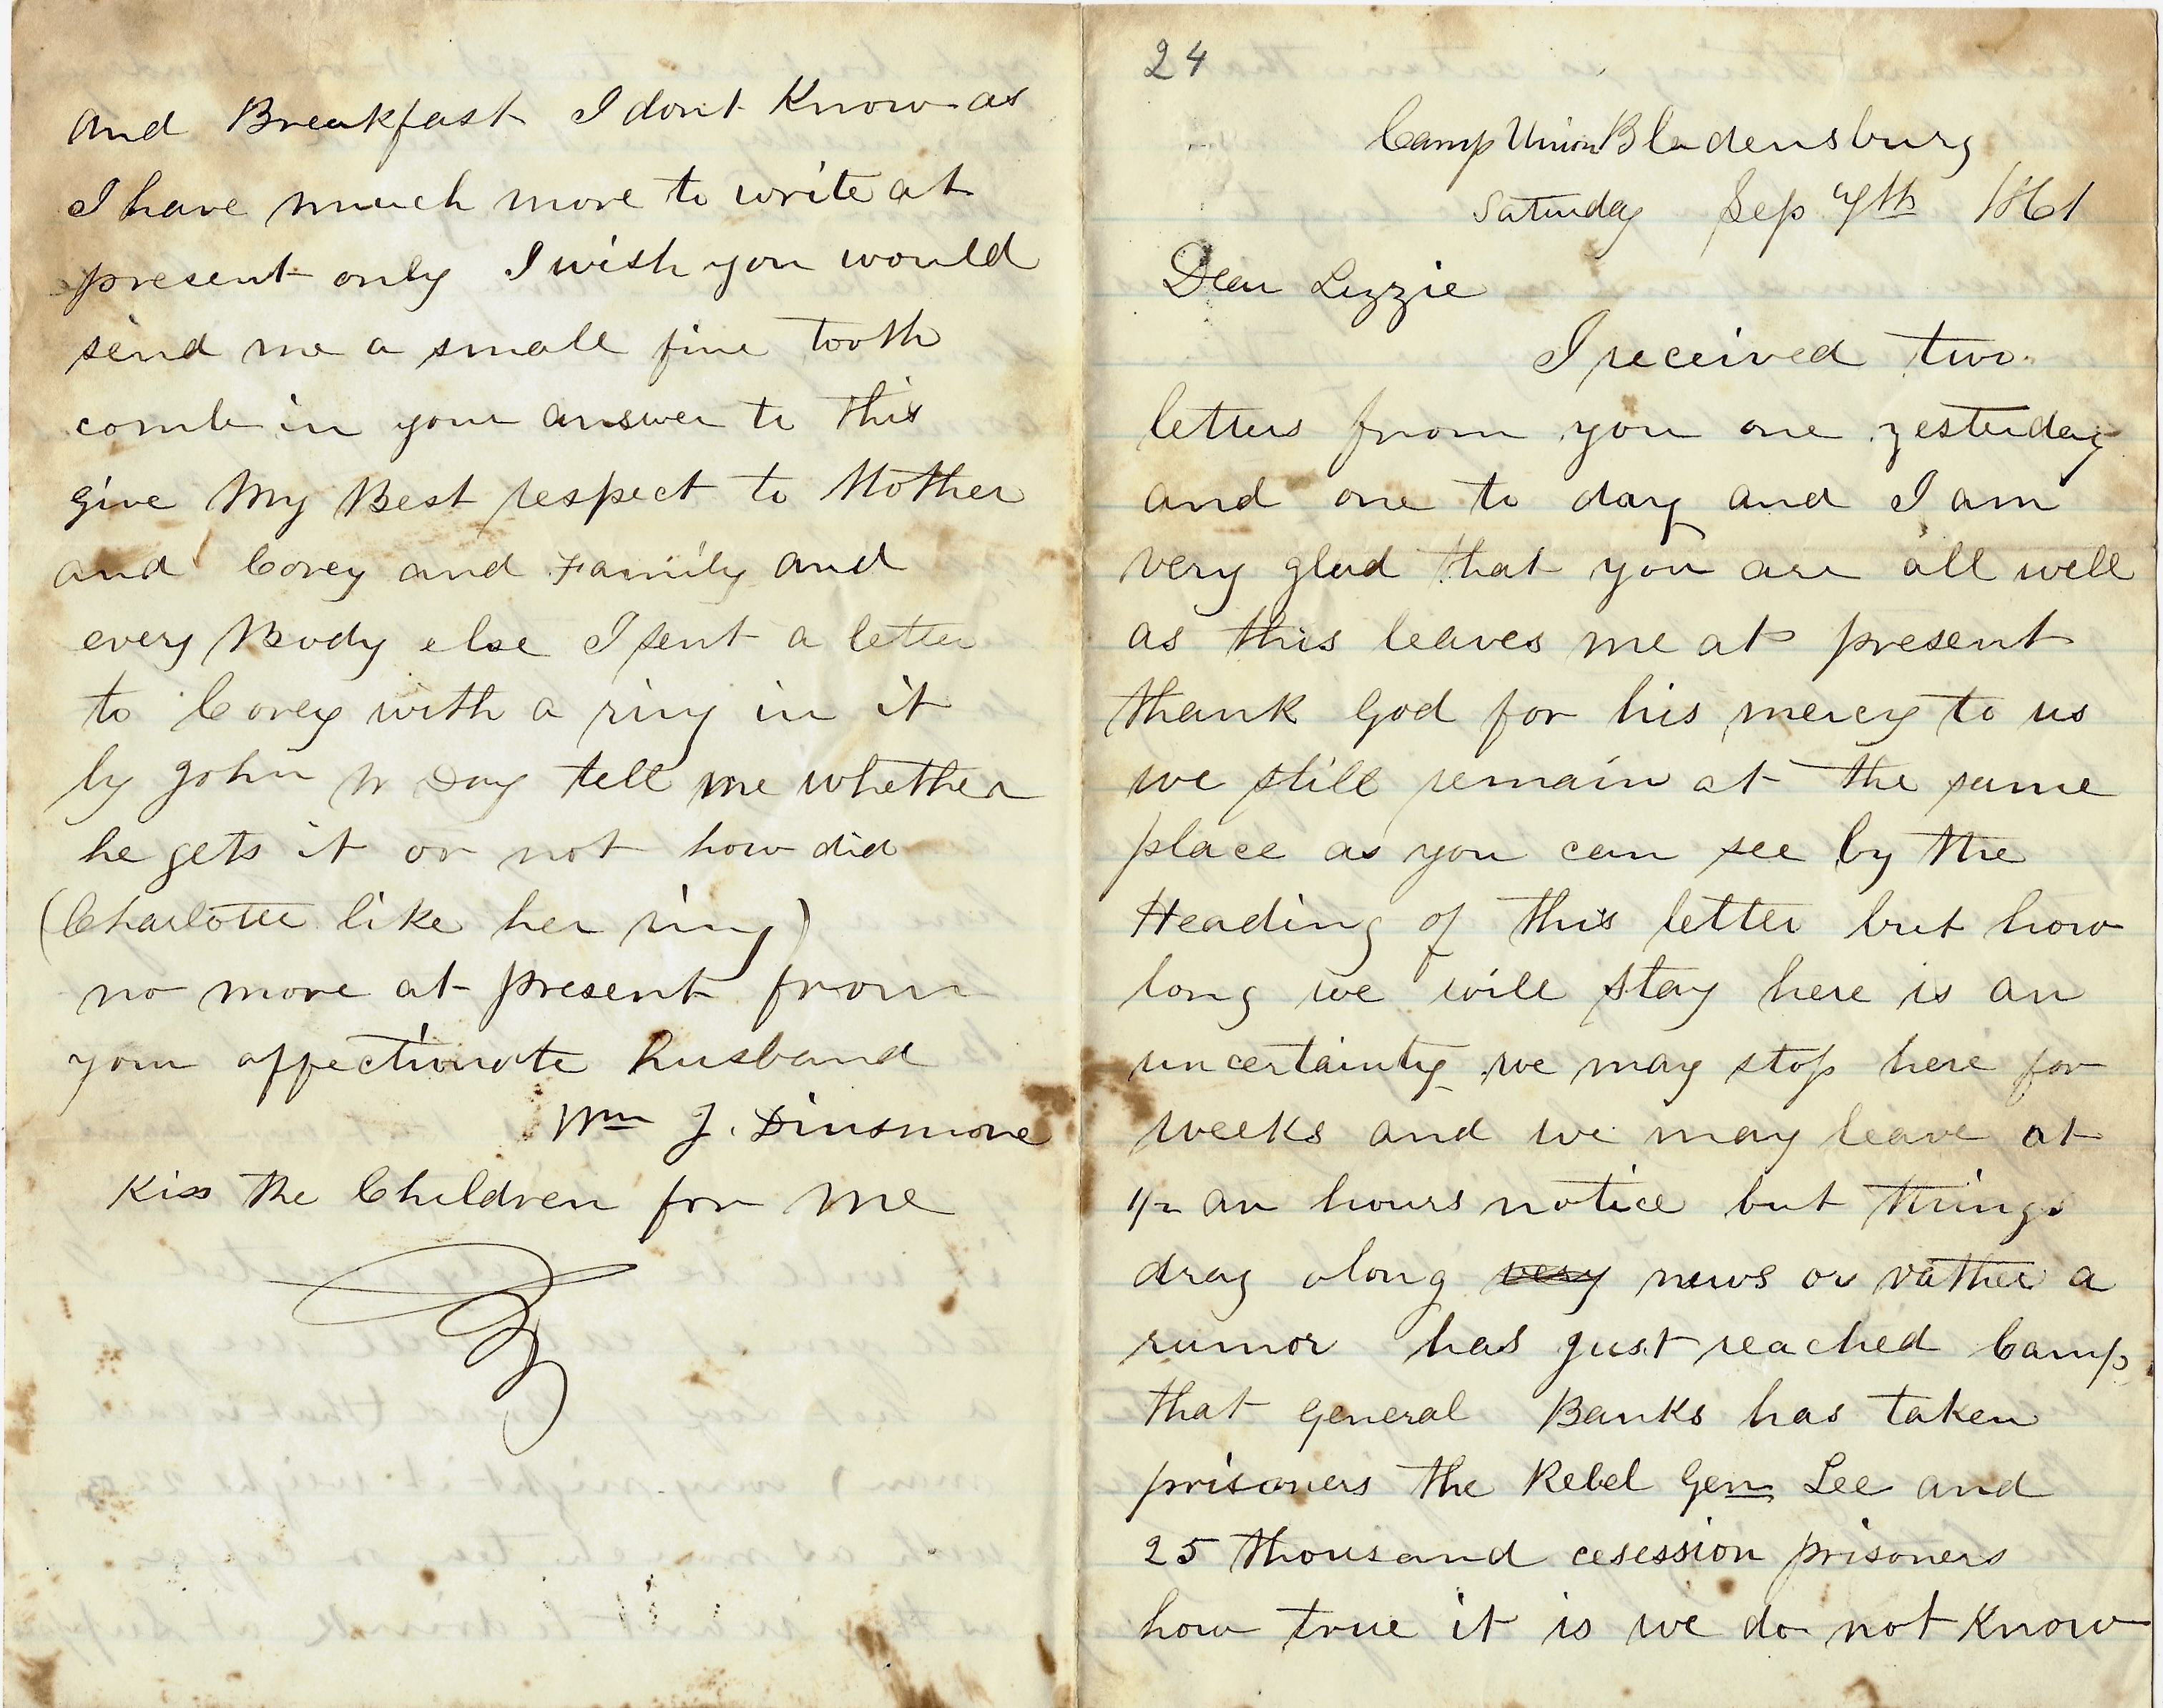 24
Camp Union Bladensburg
Saturday Sep 7th 1861
Dear Lizzie
I received two
letters from you one yesterday
and one to day and I am
very glad that you are all well
as this leaves me at present
thank God for his mercy to us
we still remain at the same
place as you can see by the
Heading of this letter but how
long we will stay here is an
uncertainty we may stop here for
weeks and we may leave at
1/2 an hours notice but things
drag along very news or rather a
rumor has just reached Camp
that general Banks has taken
prisoners the Rebel Gen Lee and
25 thousand cesession prisoners
how true it is we do not know
and Breakfast I dont Know as
I have much more to write at
present only I wish you would
send me a small fine tooth
comb in your answer to this
give My Best respect to Mother
and Corey and Family and
every Body else I sent a letter
to Corey with a ring in it
by John W Day tell me whether
he gets it or not how did
(Charlotte like her ring)
no more at present from
your affectionate husband
Wm J. Dinsmore
Kiss the Children for me